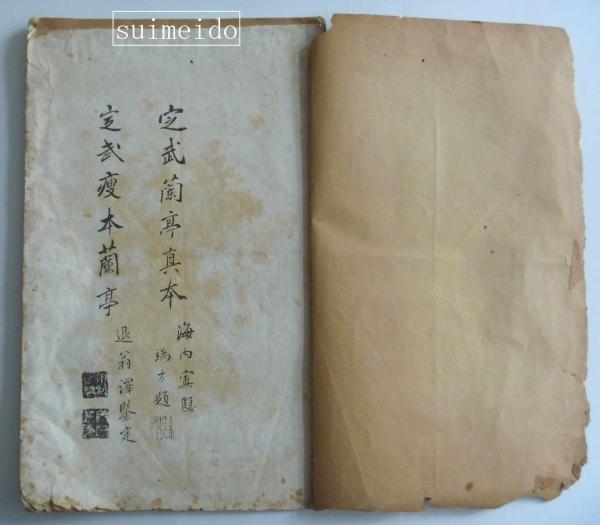 suimeido
定武蘭亭真本
海内寡雙
端方題
定武瘦本蘭亭
退翁澤鑒定